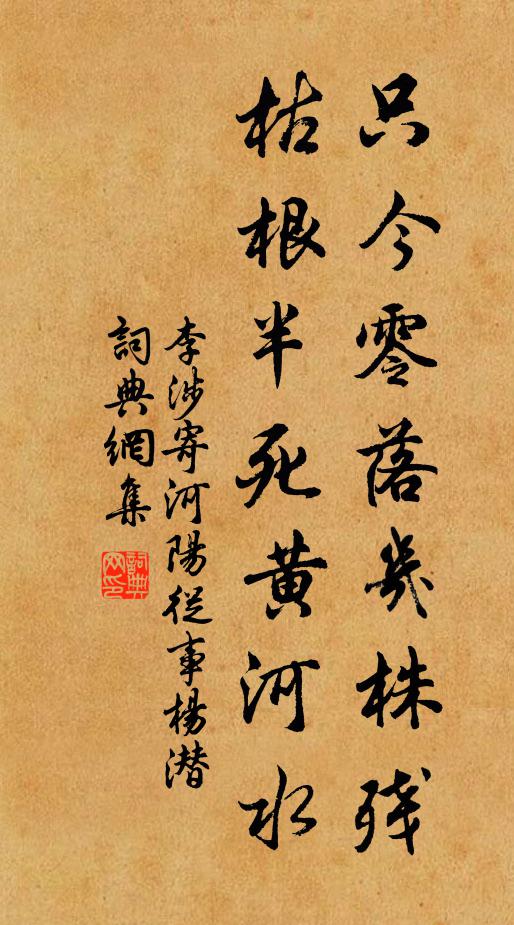 只今零落幾株殘
枯根半死黄河水
李涉寄河陽從事楊潜
詞典網集
詞典網印